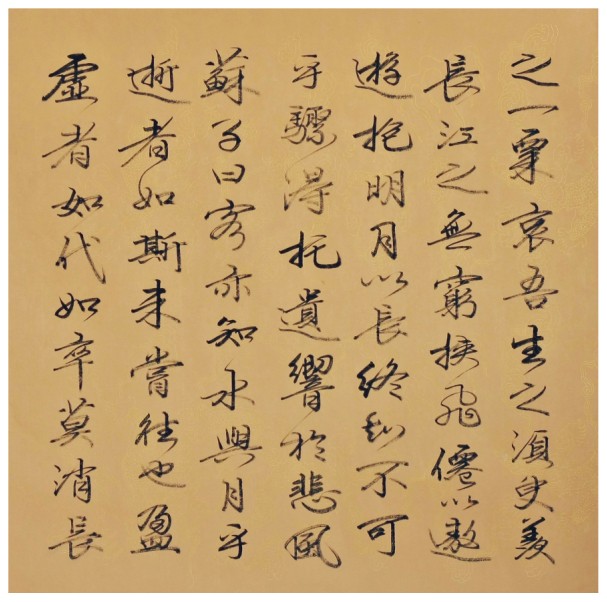 之一粟哀吾生之須臾羨
長江之無窮挾飛僊以遨
遊抱明月以長終知不可
乎驟得托遺響於悲風
蘇子曰客亦知水與月乎
逝者如斯未嘗往也盈
虛者如代如卒莫消長